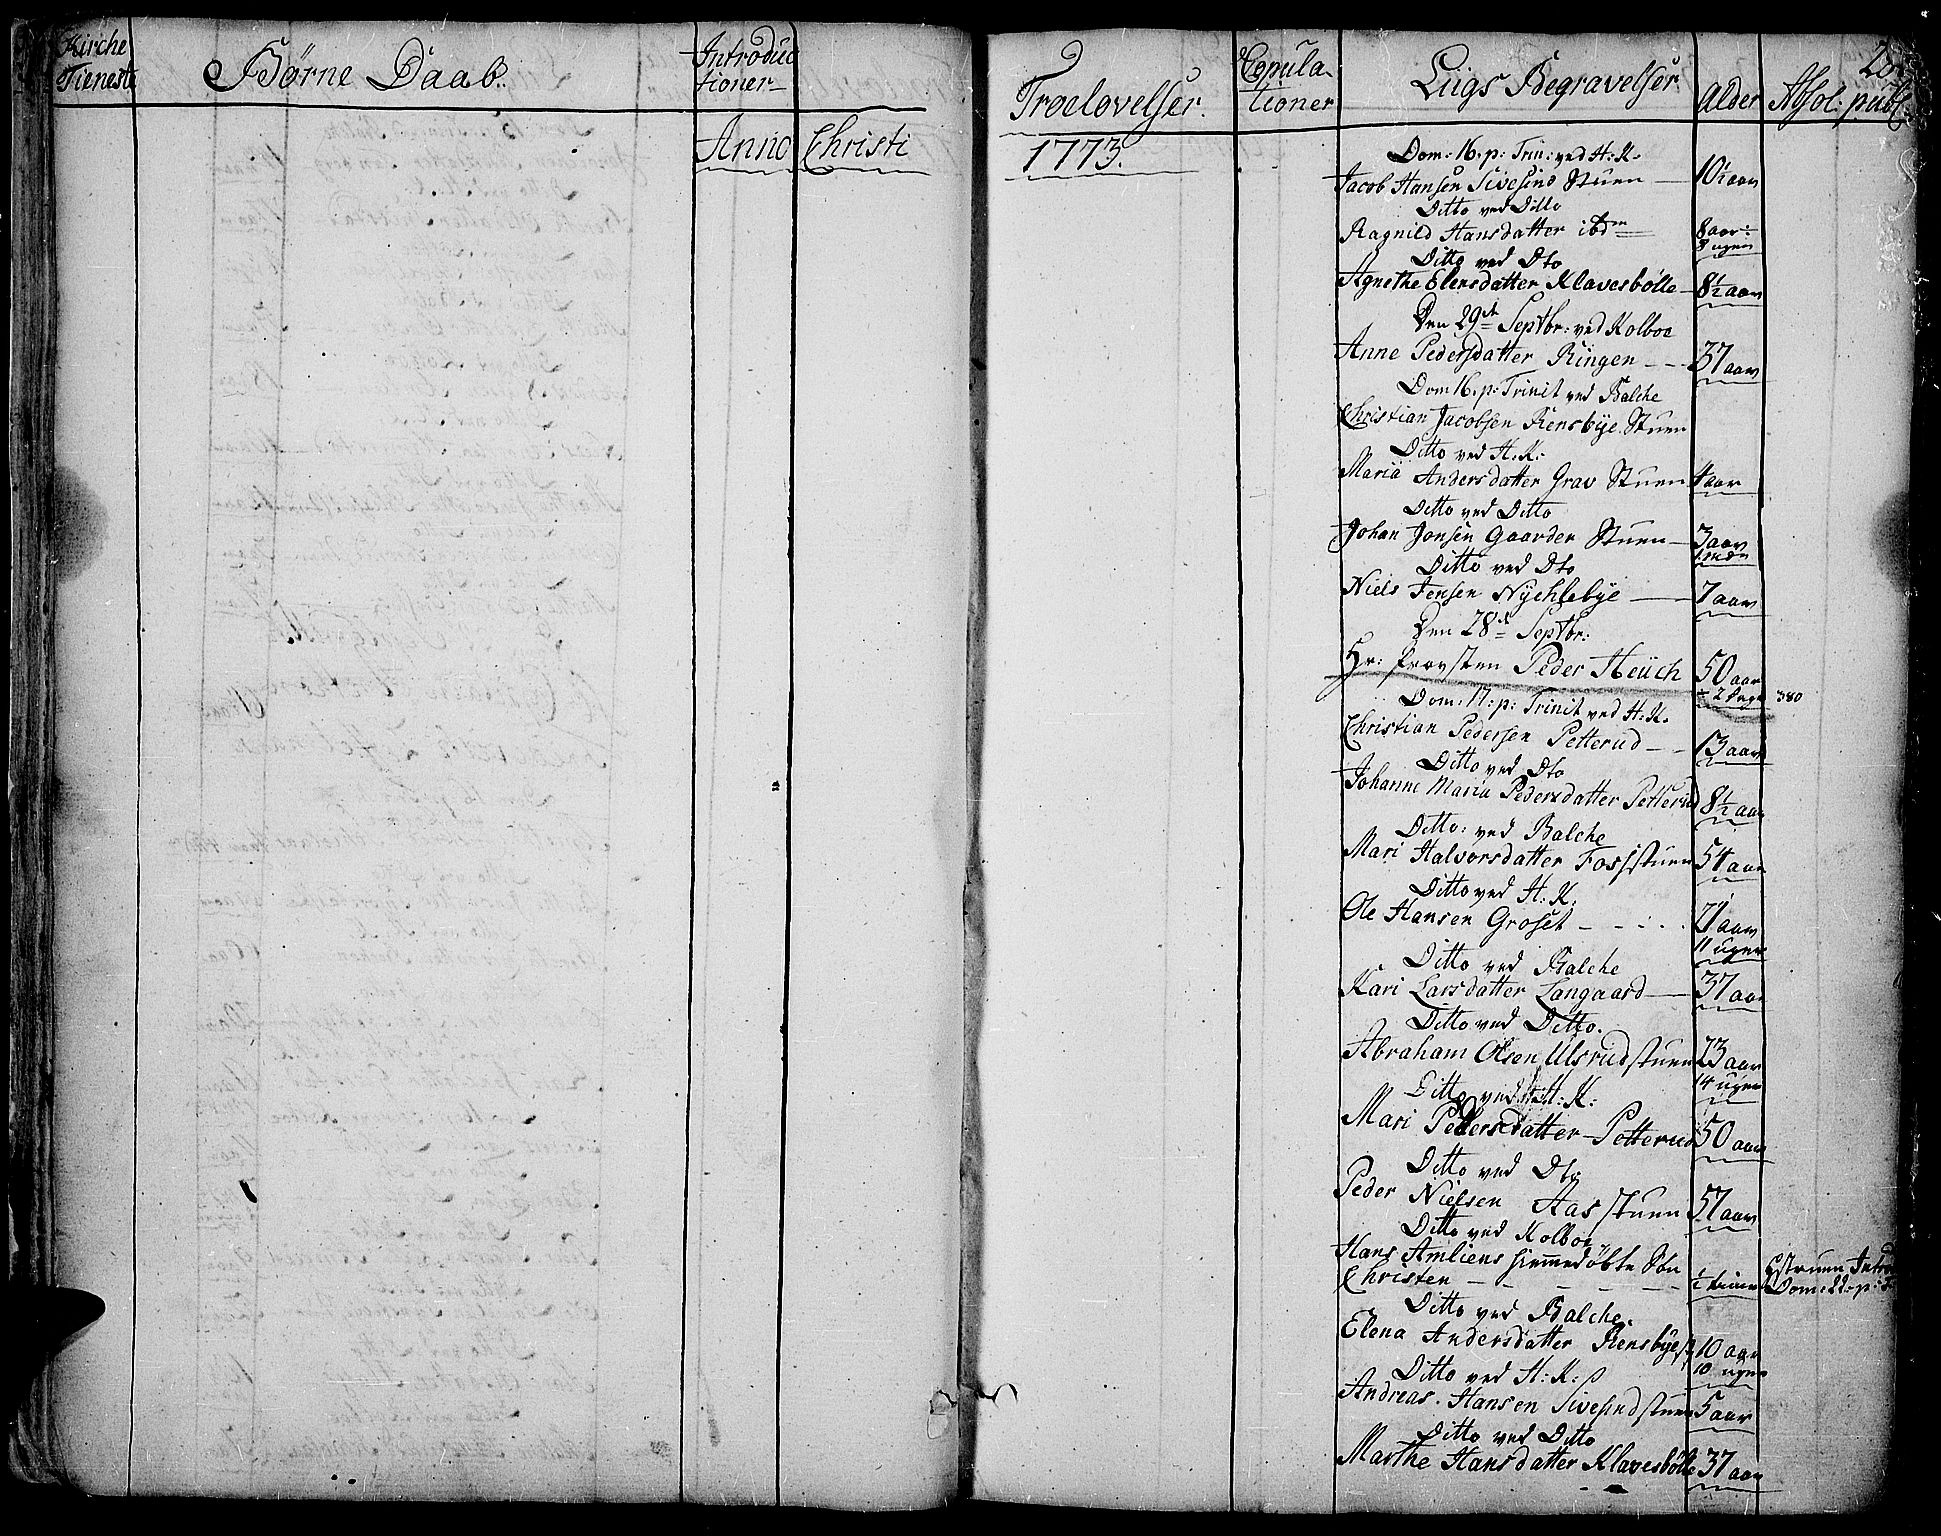 Kirche
Tieneste
Börne Daab.
Introduc
tioner
Anno Christi
Troelovelser.
1773.
Copula-
tioner
Liigs Begravelser
Alder
Absol: publ:
Dom: 16. p: Trin: ved H: K.
Jacob Hansen Sivesind Stuen — 10½ aar
Ditto ved Ditto
Ragnild Hansdatter ibdm 8 aar:
8 ugers
Ditto ved Dto
Agnethe Elensdatter Klavesbølle — 8½ aar
Den 29de Septbr: ved Kolboe
Anne Pedersdatter Ringen - - - 37 aar
Dom 16. p: Trinit ved Balche
Christian Jacobsen Rensbye Stuen
Ditto ved H: K:
Maria Andersdatter Grav Stuen 4 aar
Ditto ved Ditto
Johan Jonsen Gaarder Stuen — 3 aar
Ditto ved Dto
Niels Jensen Nychlebye — 7 aar
Den 28de Septbr:
Hr: Provsten Peder Heüch 50 aar
÷ 2 Dage 380
Dom: 17: p: Trinit ved H: K.
Christian Pedersen Petterud - - 13 aar
Ditto ved Dto
Johanne Maria Pedersdatter Petterud 8½ aar
Ditto: ved Balche
Mari Halvorsdatter Fossstuen 54 aar
Ditto ved H: K:
Ole Hansen Groset - - - - - 71 aar
11 uger
Ditto ved Balche
Kari Larsdatter Langaard — 37 aar
Ditto ved Ditto.
Abraham Olsen Ulsrudstuen 23 aar
14 uger
Ditto ved H: K:
Mari Pedersdatter Petterud 50 aar
Ditto ved Dto
Peder Nielsen Aas stuen 57 aar
Ditto ved Kolboe
Hans Amliens hiemmedöbte Sön
Christen - - - - - - ½ time
Dom: 22. p: T
Ditto ved Balche.
Elena Andersdatter Rensbye 10 aar
10 uger
Ditto ved H: K:
Andreas Hansen Sivesindstuen 5 aar
Ditto ved Ditto
Marthe Hansdatter Klavesbølle 37 aar